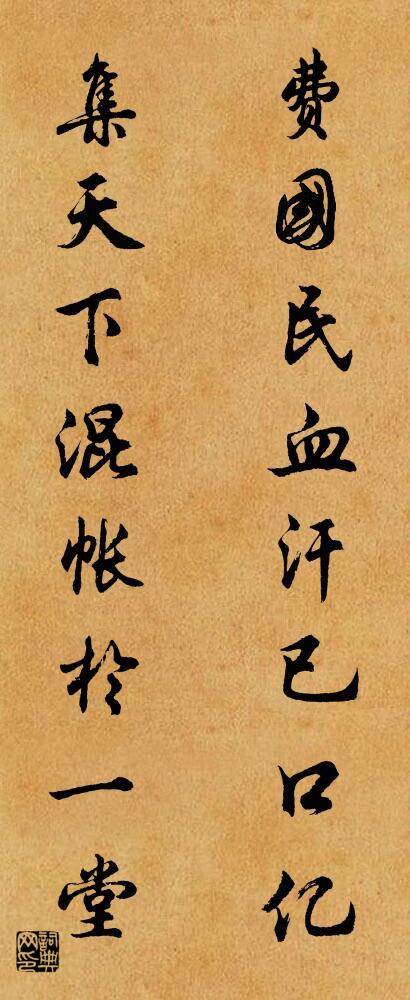 費國民血汗已口亿
集天下混帐於一堂
詞典網印